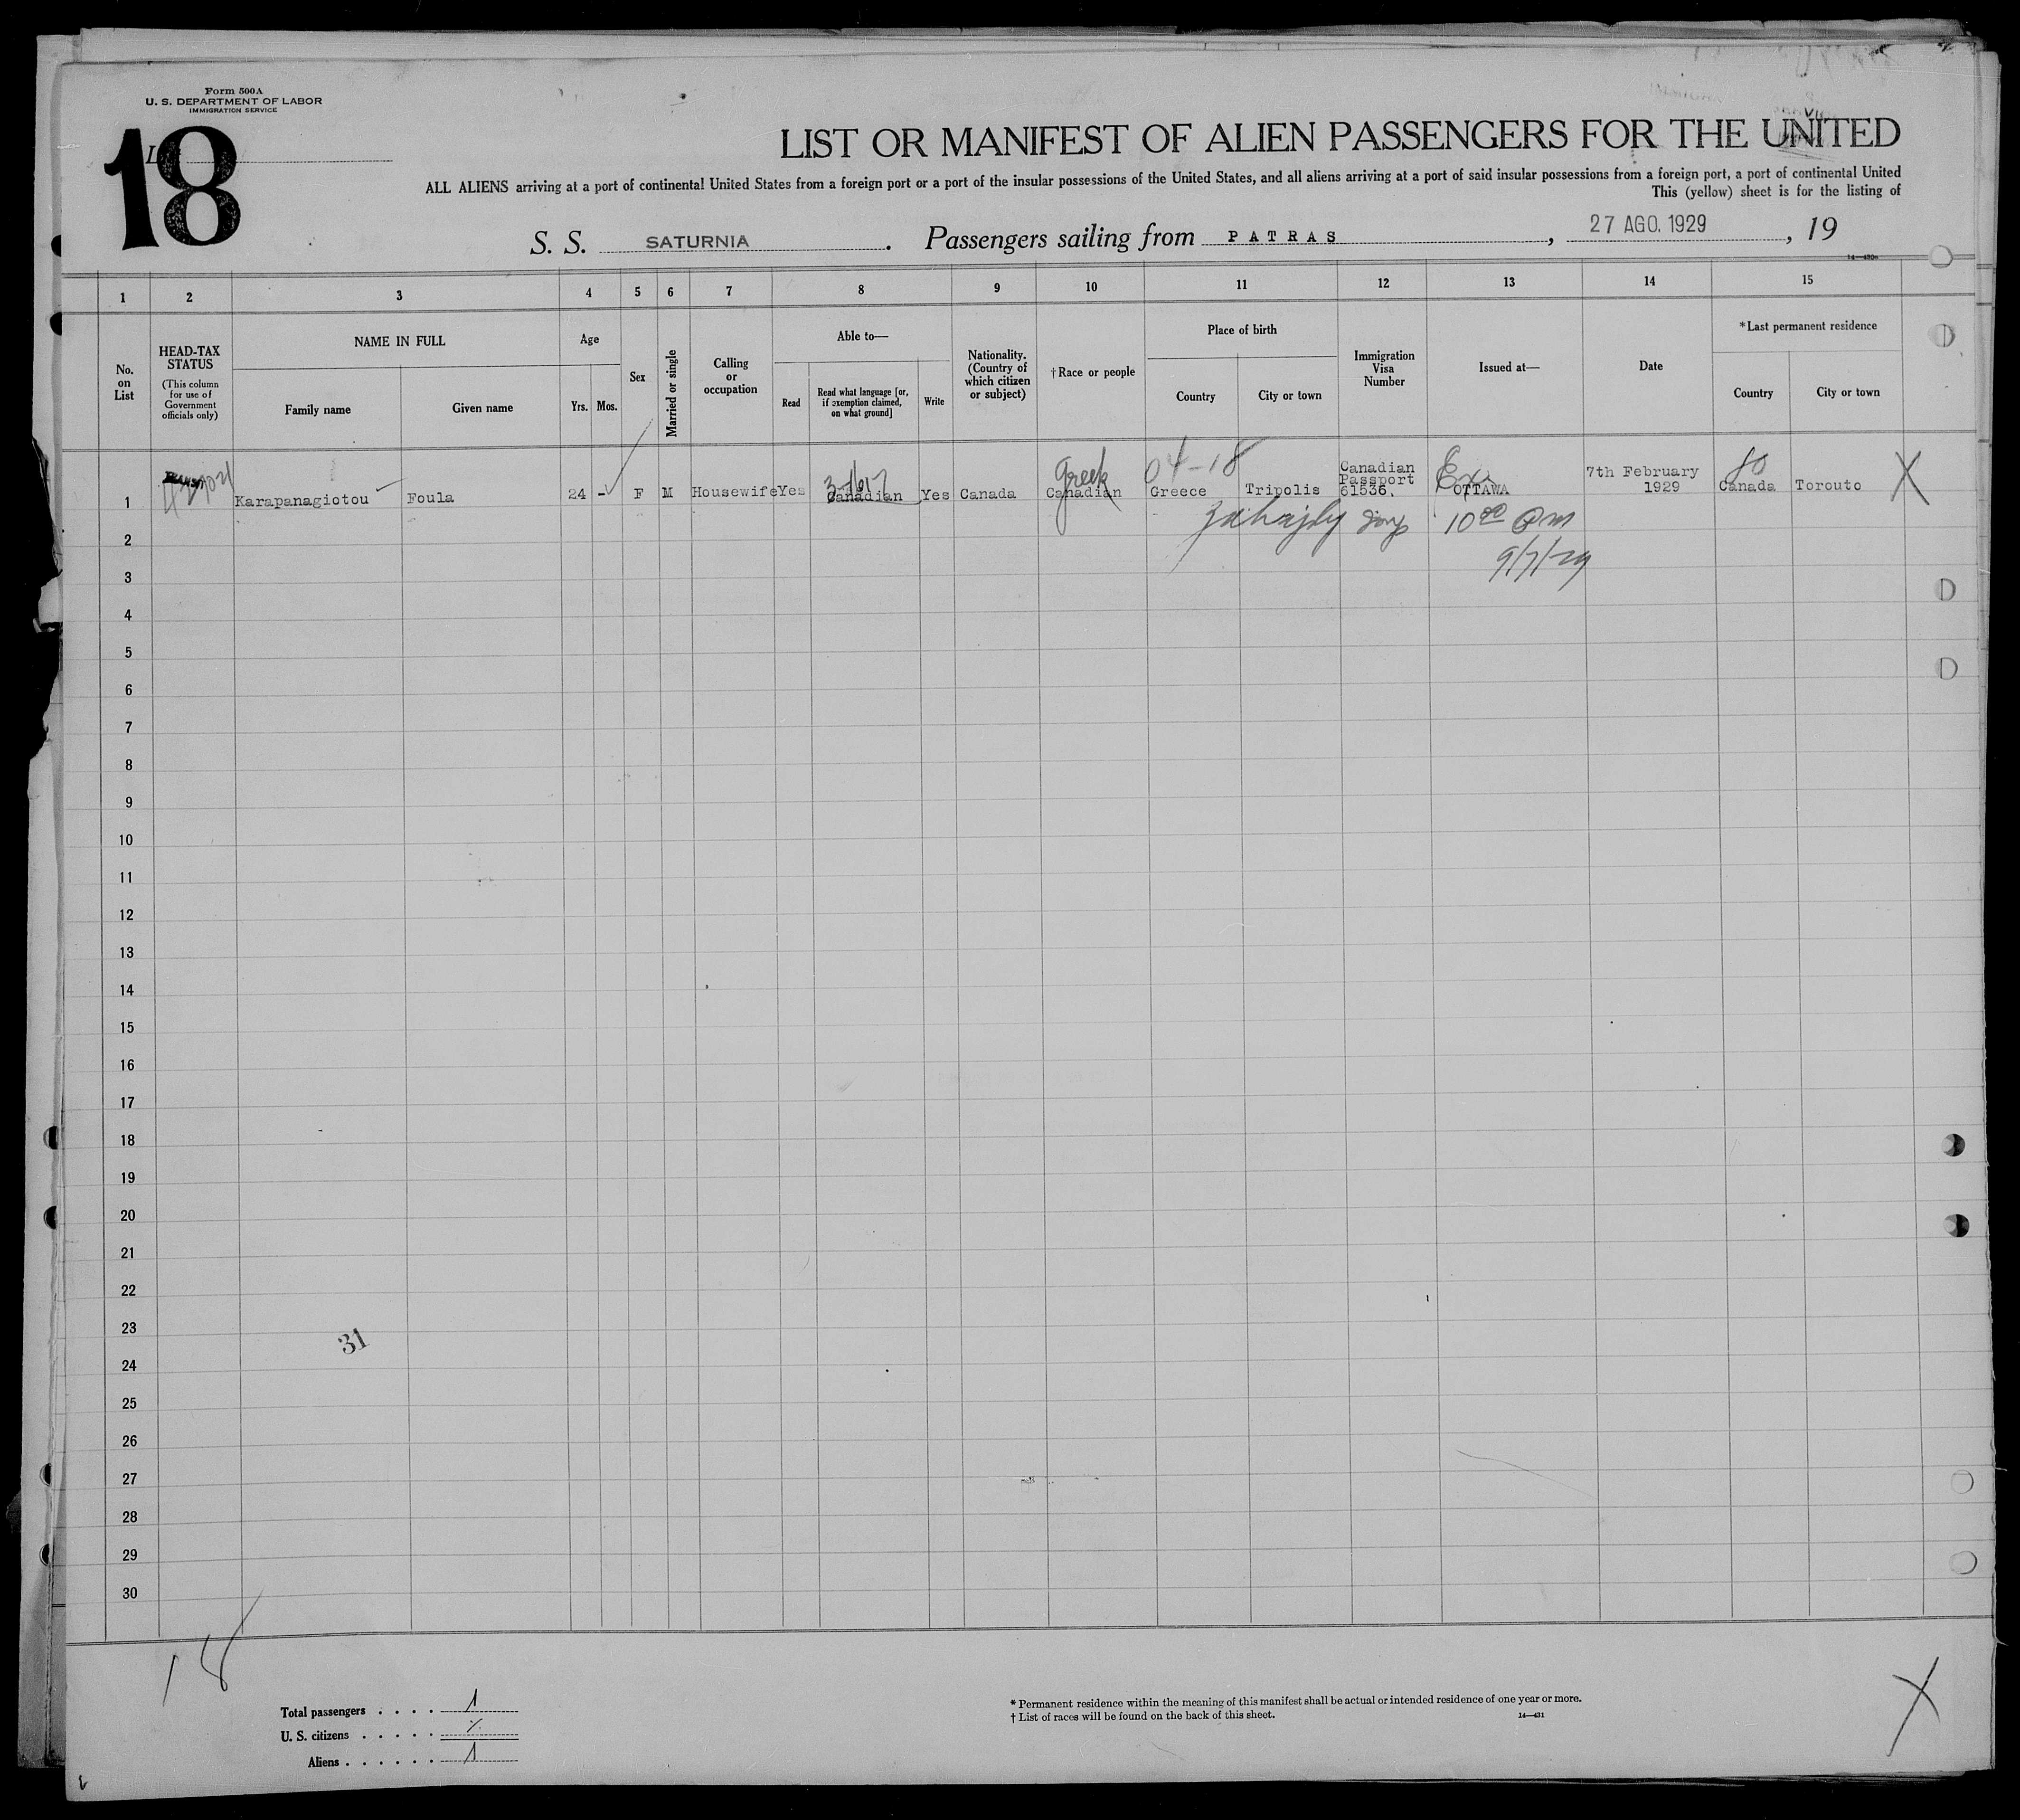 Form 500A
U. S. DEPARTMENT OF LABOR
IMMIGRATION SERVICE
18
LIST OR MANIFEST OF ALIEN PASSENGERS FOR THE UNITED
ALL ALIENS arriving at a port of continental United States from a foreign port or a port of the insular possessions of the United States, and all aliens arriving at a port of said insular possessions from a foreign port, a port of continental United
This (yellow) sheet is for the listing of
S. S. SATURNIA. Passengers sailing from PATRAS, 27 AGO. 1929, 19
14—430
1 2 3 4 5 6 7 8 9 10 11 12 13 14 15
No. on List
HEAD-TAX STATUS
(This column for use of Government officials only)
NAME IN FULL
Family name
Given name
Age
Yrs. Mos.
Sex
Married or single
Calling or occupation
Able to—
Read
Read what language [or, if exemption claimed, on what ground]
Write
Nationality. (Country of which citizen or subject)
†Race or people
Place of birth
Country
City or town
Immigration Visa Number
Issued at—
Date
*Last permanent residence
Country
City or town
Greek 04-18
1 Karapanagiotou Foula 24 - F M Housewife Yes Canadian Yes Canada Canadian Greece Tripolis Canadian Passport 61536. OTTAWA 7th February 1929 Canada Torouto X
2 10
3 9/7/29
4
5
6
7
8
9
10
11
12
13
14
15
16
17
18
19
20
21
22
23
31
24
25
26
27
28
29
30
18
Total passengers . . . . 1
U. S. citizens . . . . .
Aliens . . . . . . 1
* Permanent residence within the meaning of this manifest shall be actual or intended residence of one year or more.
† List of races will be found on the back of this sheet.
14—431
X